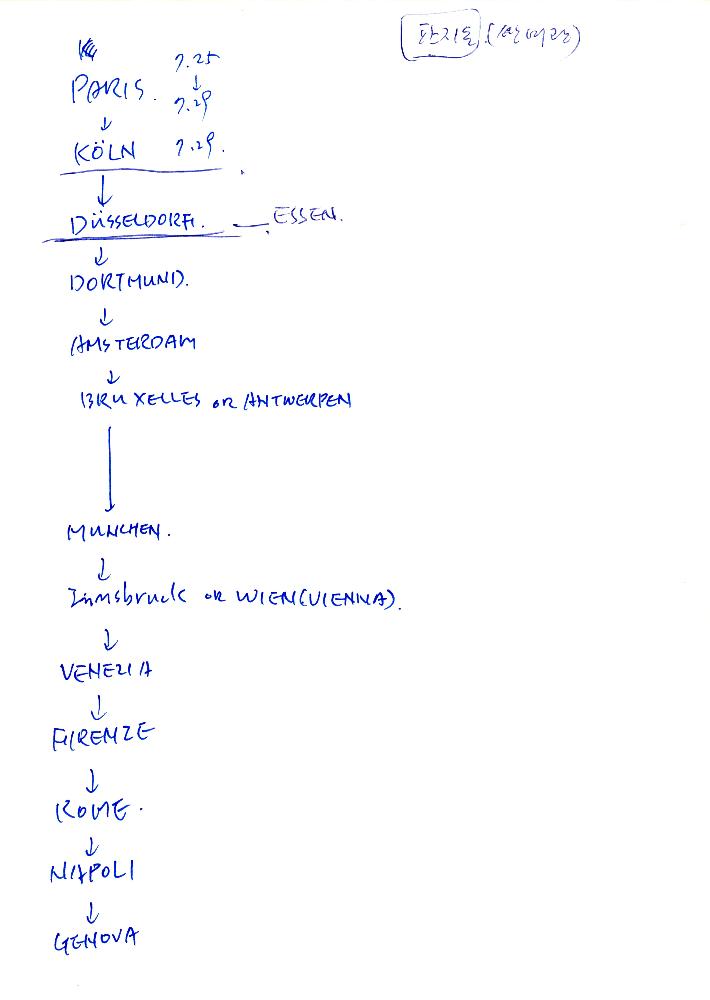 판지를
7.25
↓
PARIS. 7.29
↓
KÖLN 7.29.
↓
DÜSSELDORF. — ESSEN.
↓
DORTMUND.
↓
AMSTERDAM
↓
BRUXELLES OR ANTWERPEN
↓
MUNCHEN.
↓
Innsbruck OR WIEN(VIENNA).
↓
VENEZIA
↓
FIRENZE
↓
ROME.
↓
NAPOLI
↓
GENOVA